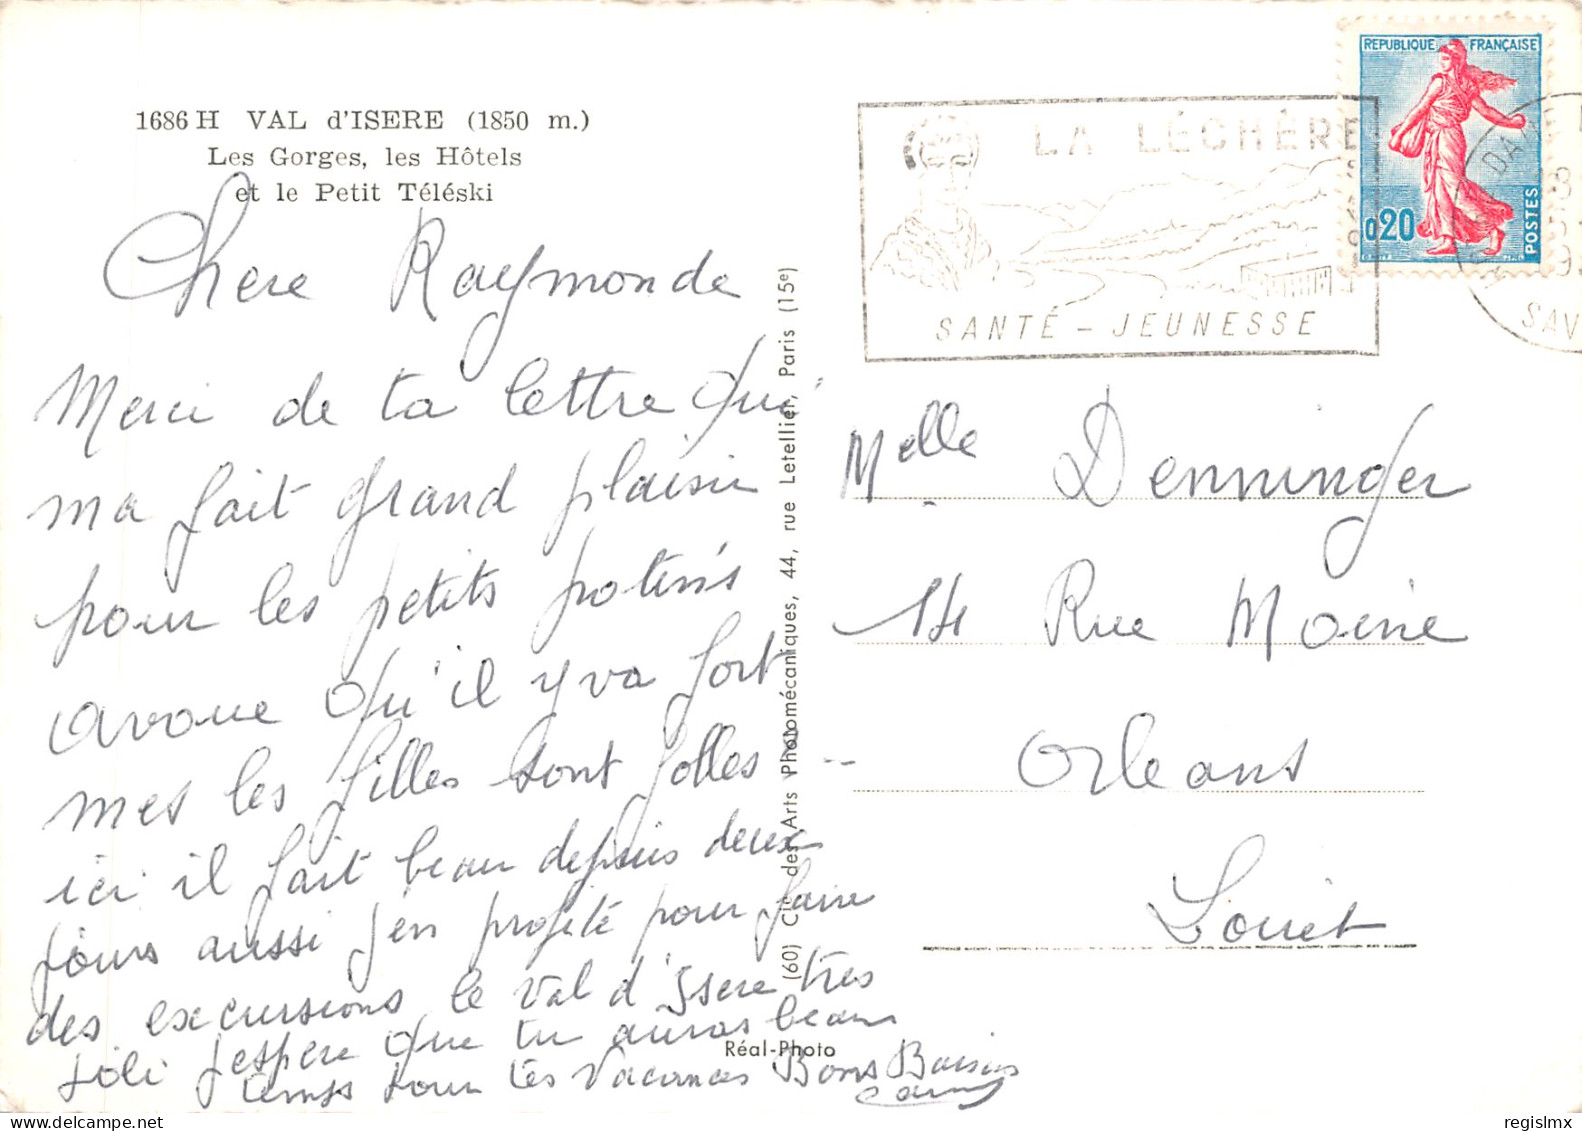 1686 H VAL d'ISERE (1850 m.)
Les Gorges, les Hôtels
et le Petit Téléski
Chere Raymonde
Merci de ta lettre qui
ma fait grand plaisir
pour les petits potins
avoue qu'il y va fort
mes les filles sont folles --
ici il fait beau depuis deux
jours aussi j'en profite pour faire
des excursions le Val d'Isere tres
joli j'espere que tu auras beau
temps pour tes Vacances Bons Baisers
(60) Cie des Arts Photomécaniques, 44, rue Letellier, Paris (15e)
Réal-Photo
LA LÉCHÈRE
SANTÉ - JEUNESSE
REPUBLIQUE FRANÇAISE
0,20
POSTES
SAV
Melle Denninger
14 Rue Moine
Orleans
Loiret
regislmx